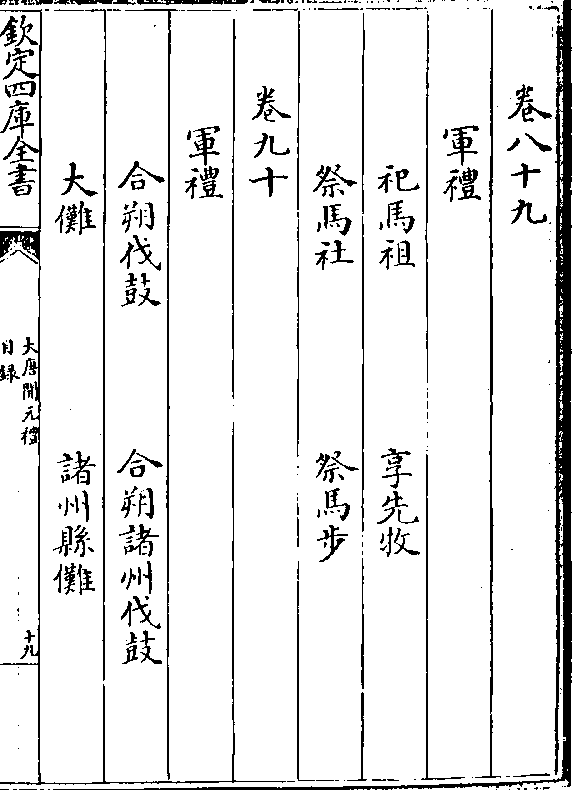 卷八十九
軍禮
祀馬祖　享先牧
祭馬社　祭馬步
卷九十
軍禮
合朔伐鼓　合朔諸州伐鼓
大儺　諸州縣儺
欽定四庫全書
大唐開元禮
目録
十九